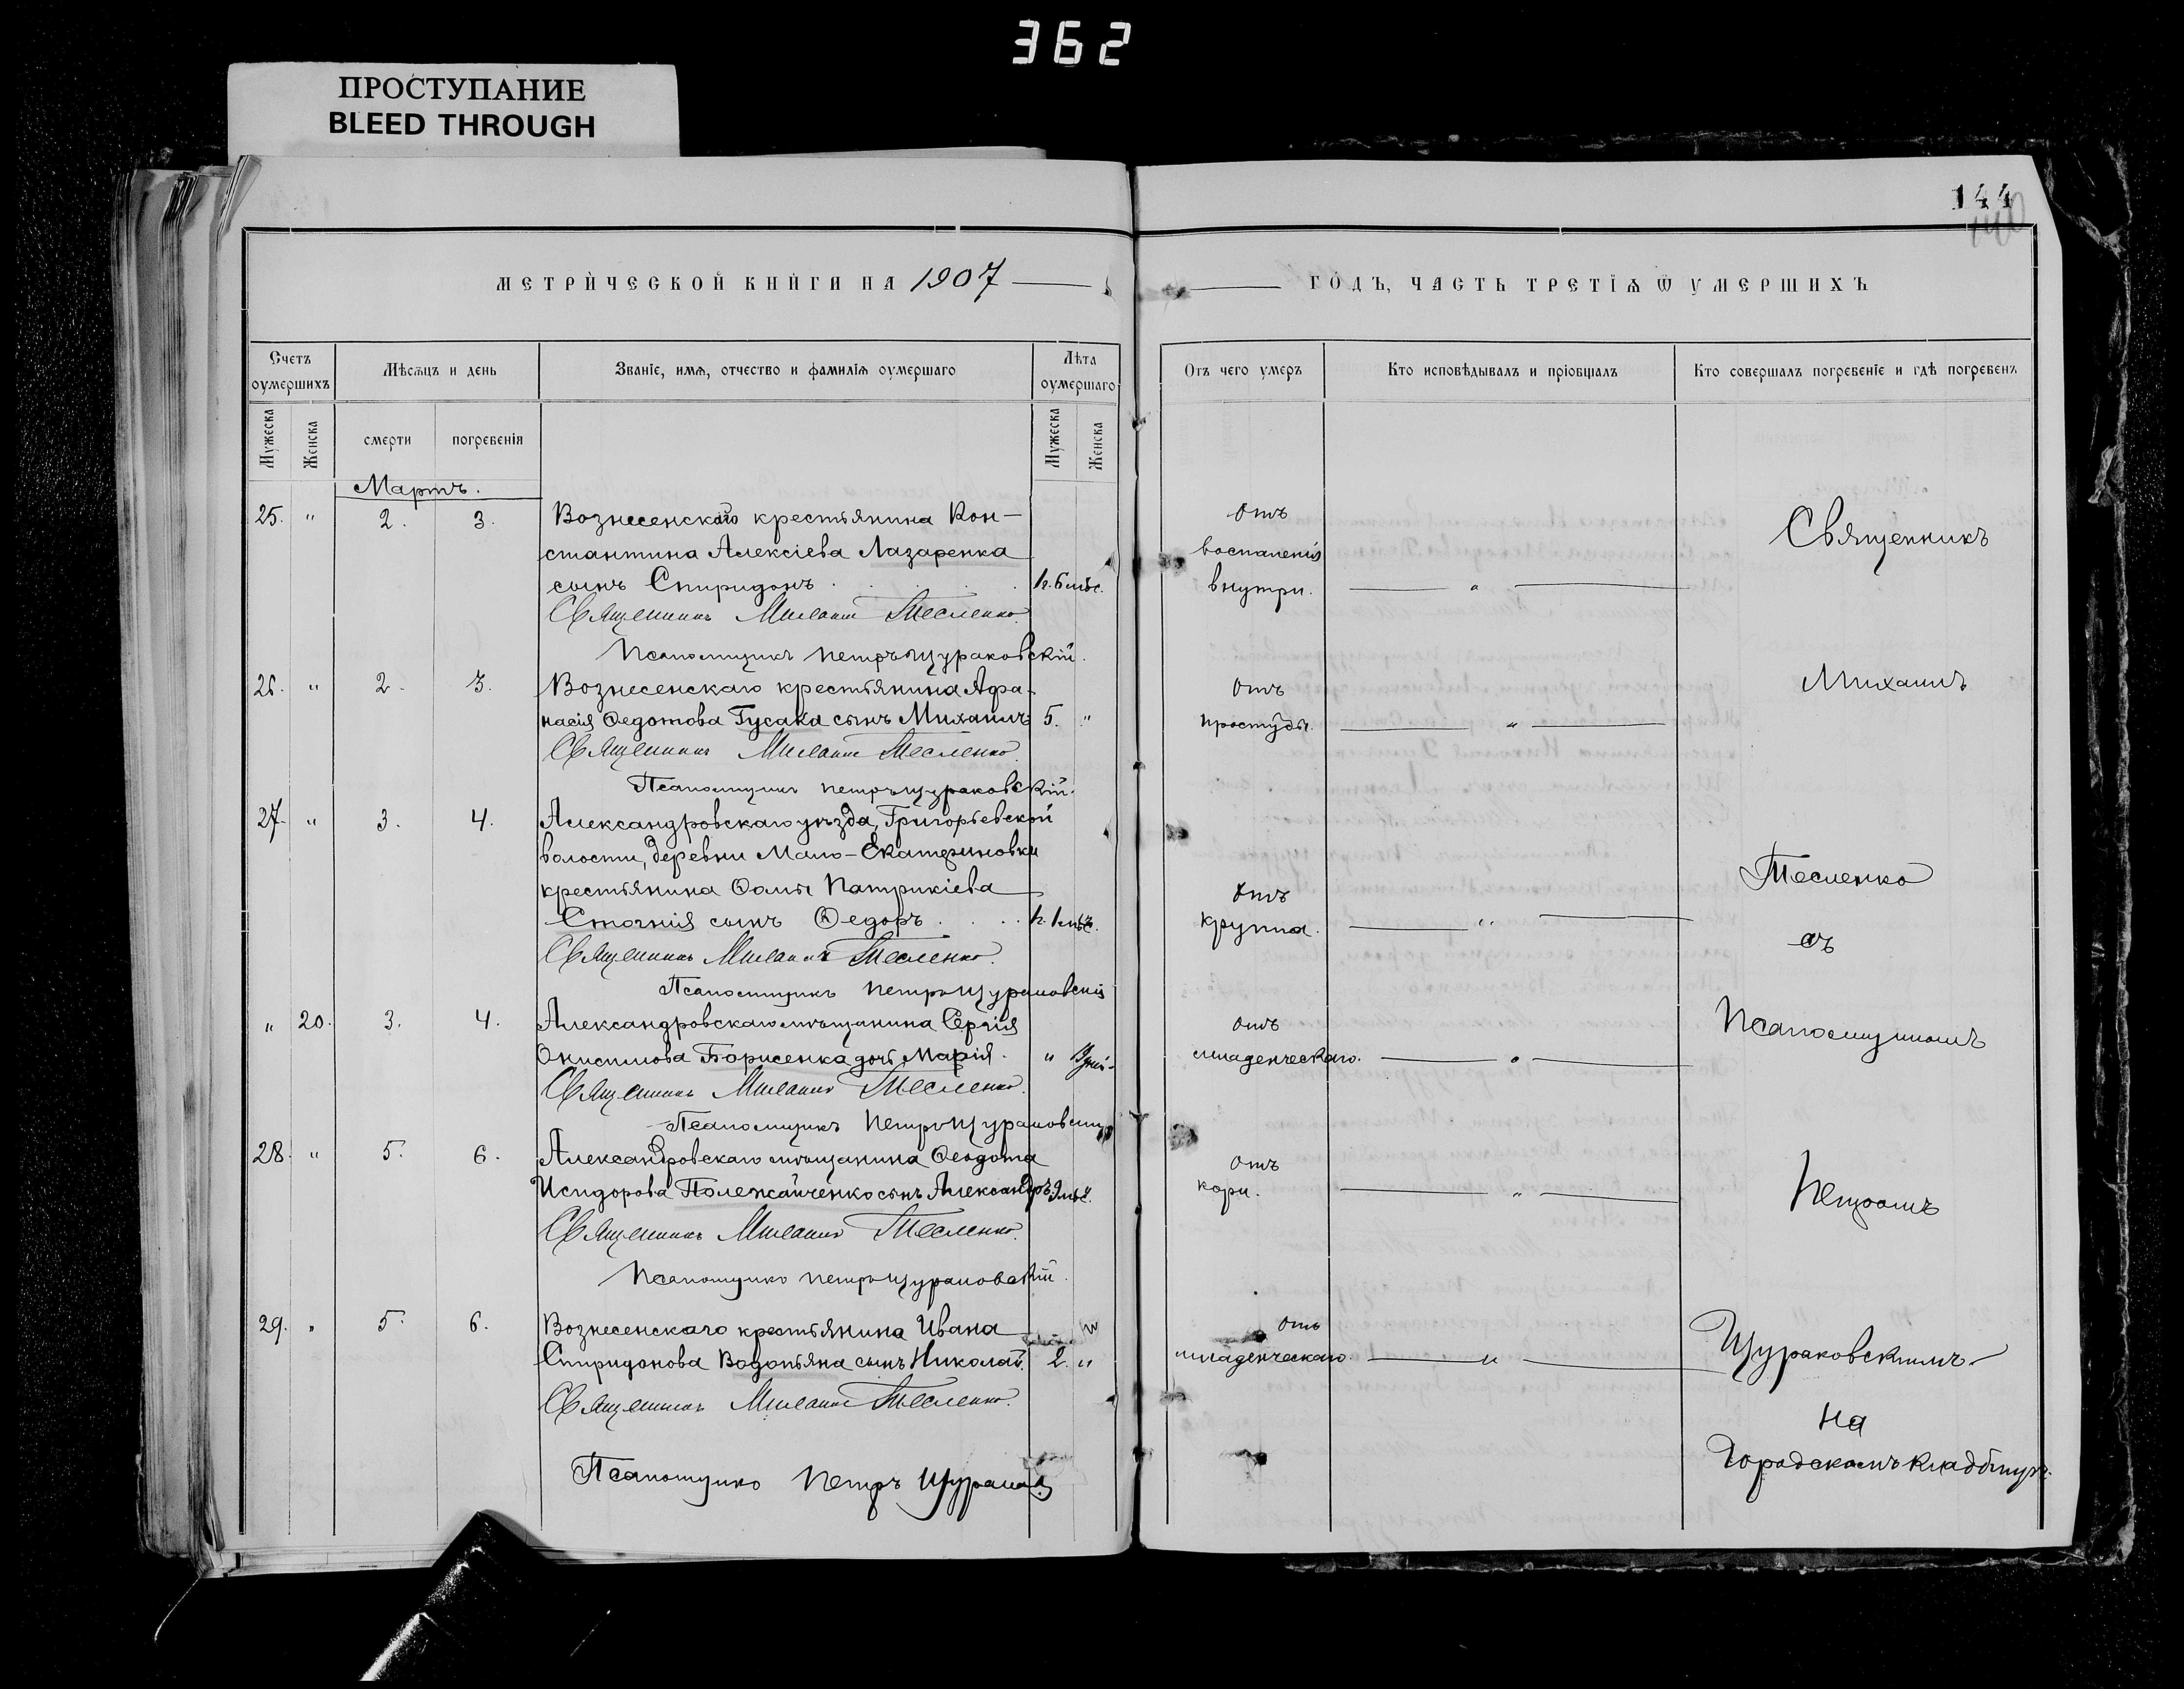 362
ПРОСТУПАНИЕ
BLEED THROUGH
144
МЕТРИЧЕСКОЙ КНИГИ НА 1907
ГОДЪ, ЧАСТЬ ТРЕТІѦ Ѿ УМЕРШИХЪ
Счетъ оумершихъ
Мѣсѧцъ и день
Званіе, имѧ, отчество и фамиліѧ оумершаго
Лѣта оумершаго
Отъ чего умеръ
Кто исповѣдывалъ и пріобщалъ
Кто совершалъ погребеніе и гдѣ погребенъ
Мужеска
Женска
смерти
погребенія
Мужеска
Женска
Мартъ.
25. " 2. 3. Вознесенскаго крестьянина Кон-
стантина Алексіева Лазаренка
сынъ Спиридонъ 1г. 6 мѣс.
Отъ
воспаленія
внутри.
Священникъ Михаилъ Тесленко.
Псаломщикъ Петръ Щураковскій.
26. " 2. 3. Вознесенскаго крестьянина Афа-
насія Ѳедотова Гусака сынъ Михаилъ 5. "
Отъ
простуды.
Священникъ Михаилъ Тесленко
Псаломщикъ Петръ Щураковскій.
27. " 3. 4. Александровскаго уѣзда, Григорьевской
волости, деревни Мало-Екатериновки
крестьянина Ѳомы Патрикіева
Сточнія сынъ Ѳедоръ 1г. 1 мѣс.
Отъ
крупа.
Священникъ Михаилъ Тесленко.
Псаломщикъ Петръ Щураковскій
" 20. 3. 4. Александровскаго мѣщанина Сергія
Онисимова Борисенка дочь Марія. "
Отъ
младенческаго.
Священникъ Михаилъ Тесленко.
Псаломщикъ Петръ Щураковскій
28. " 5. 6. Александровскаго мѣщанина Ѳеодота
Исидорова Полежайченко сынъ Александръ 9 мѣс.
Отъ
кори.
Священникъ Михаилъ Тесленко.
Псаломщикъ Петръ Щураковскій.
29. " 5. 6. Вознесенскаго крестьянина Ивана
Спиридонова Водопьяна сынъ Николай. 2. "
Отъ
младенческаго.
Священникъ Михаилъ Тесленко.
Псаломщикъ Петръ
Священникъ
Михаилъ
Тесленко
съ
Псаломщикомъ
Петромъ
Щураковскимъ
на
Городскомъ кладбищѣ.